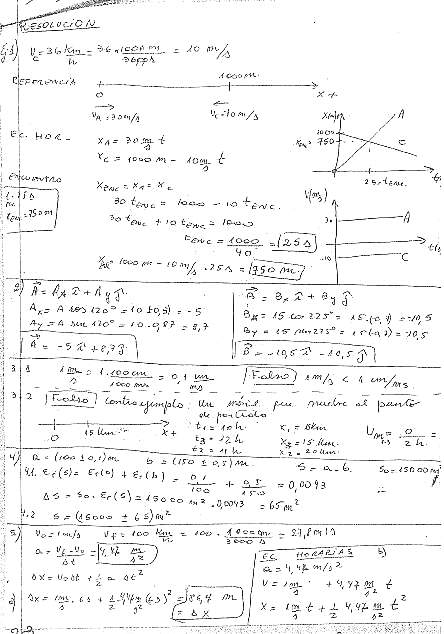 RESOLUCION
Ej 1) Vc = 36 Km/h = 36 x 1000 m / 3600 s = 10 m/s
REFERENCIA + 1000m
0 X +
VA = 30m/s Vc = 10m/s
EC. HOR - XA = 30 m/s t
Xc = 1000 m - 10 m/s t
X(m) A
1000
750 C
25 tENC.
ENCUENTRO XENC = XA = Xc
30 tENC = 1000 - 10 tENC.
30 tENC + 10 tENC = 1000
tENC = 1000/40 = 25 s
XENC = 1000 m - 10 m/s . 25 s = 750 m
V(m/s)
30 A
t(s)
-10 C
2) A = Ax i + Ay j
Ax = A cos 120° = 10 (-0,5) = -5
Ay = A sen 120° = 10 . 0,87 = 8,7
A = -5 i + 8,7 j
B = Bx i + By j
Bx = 15 cos 225° = 15.(-0,7) = -10,5
By = 15 sen 225° = 15(-0,7) = -10,5
B = -10,5 i - 10,5 j
3.1 1 m/s = 1.100 cm / 1000 ms = 0,1 cm/ms Falso 1m/s < 1 cm/ms.
3.2 Falso contraejemplo: Un móvil que vuelve al punto
de partida
0 15 Km X +
t1 = 10 h X1 = 15Km
t3 = 12 h X3 = 15 Km.
t2 = 11 h X2 = 20Km
Vm = 0/2h =
4) a = (100 ± 0,1)m b = (150 ± 0,5)m S = a.b. So = 15000 m²
4.1. Er(S) = Er(a) + Er(b) = 0,1/100 + 0,5/150 = 0,0043
ΔS = So. Er(S) = 15000 m² . 0,0043 = 65 m²
4.2 S = (15000 ± 65) m²
5) Vo = 1m/s Vf = 100 Km/h = 100 . 1000m / 3600 s = 27,8 m/s
a = Vf - Vo / Δt = 4,47 m/s²
ΔX = Vo Δt + 1/2 a Δt²
ΔX = 1 m/s . 6 s + 1/2 4,47 m/s² (6 s)² = 86,4 m
= ΔX
EC. HORARIAS
a = 4,47 m/s²
V = 1 m/s + 4,47 m/s² t
X = 1 m/s t + 1/2 4,47 m/s² t²